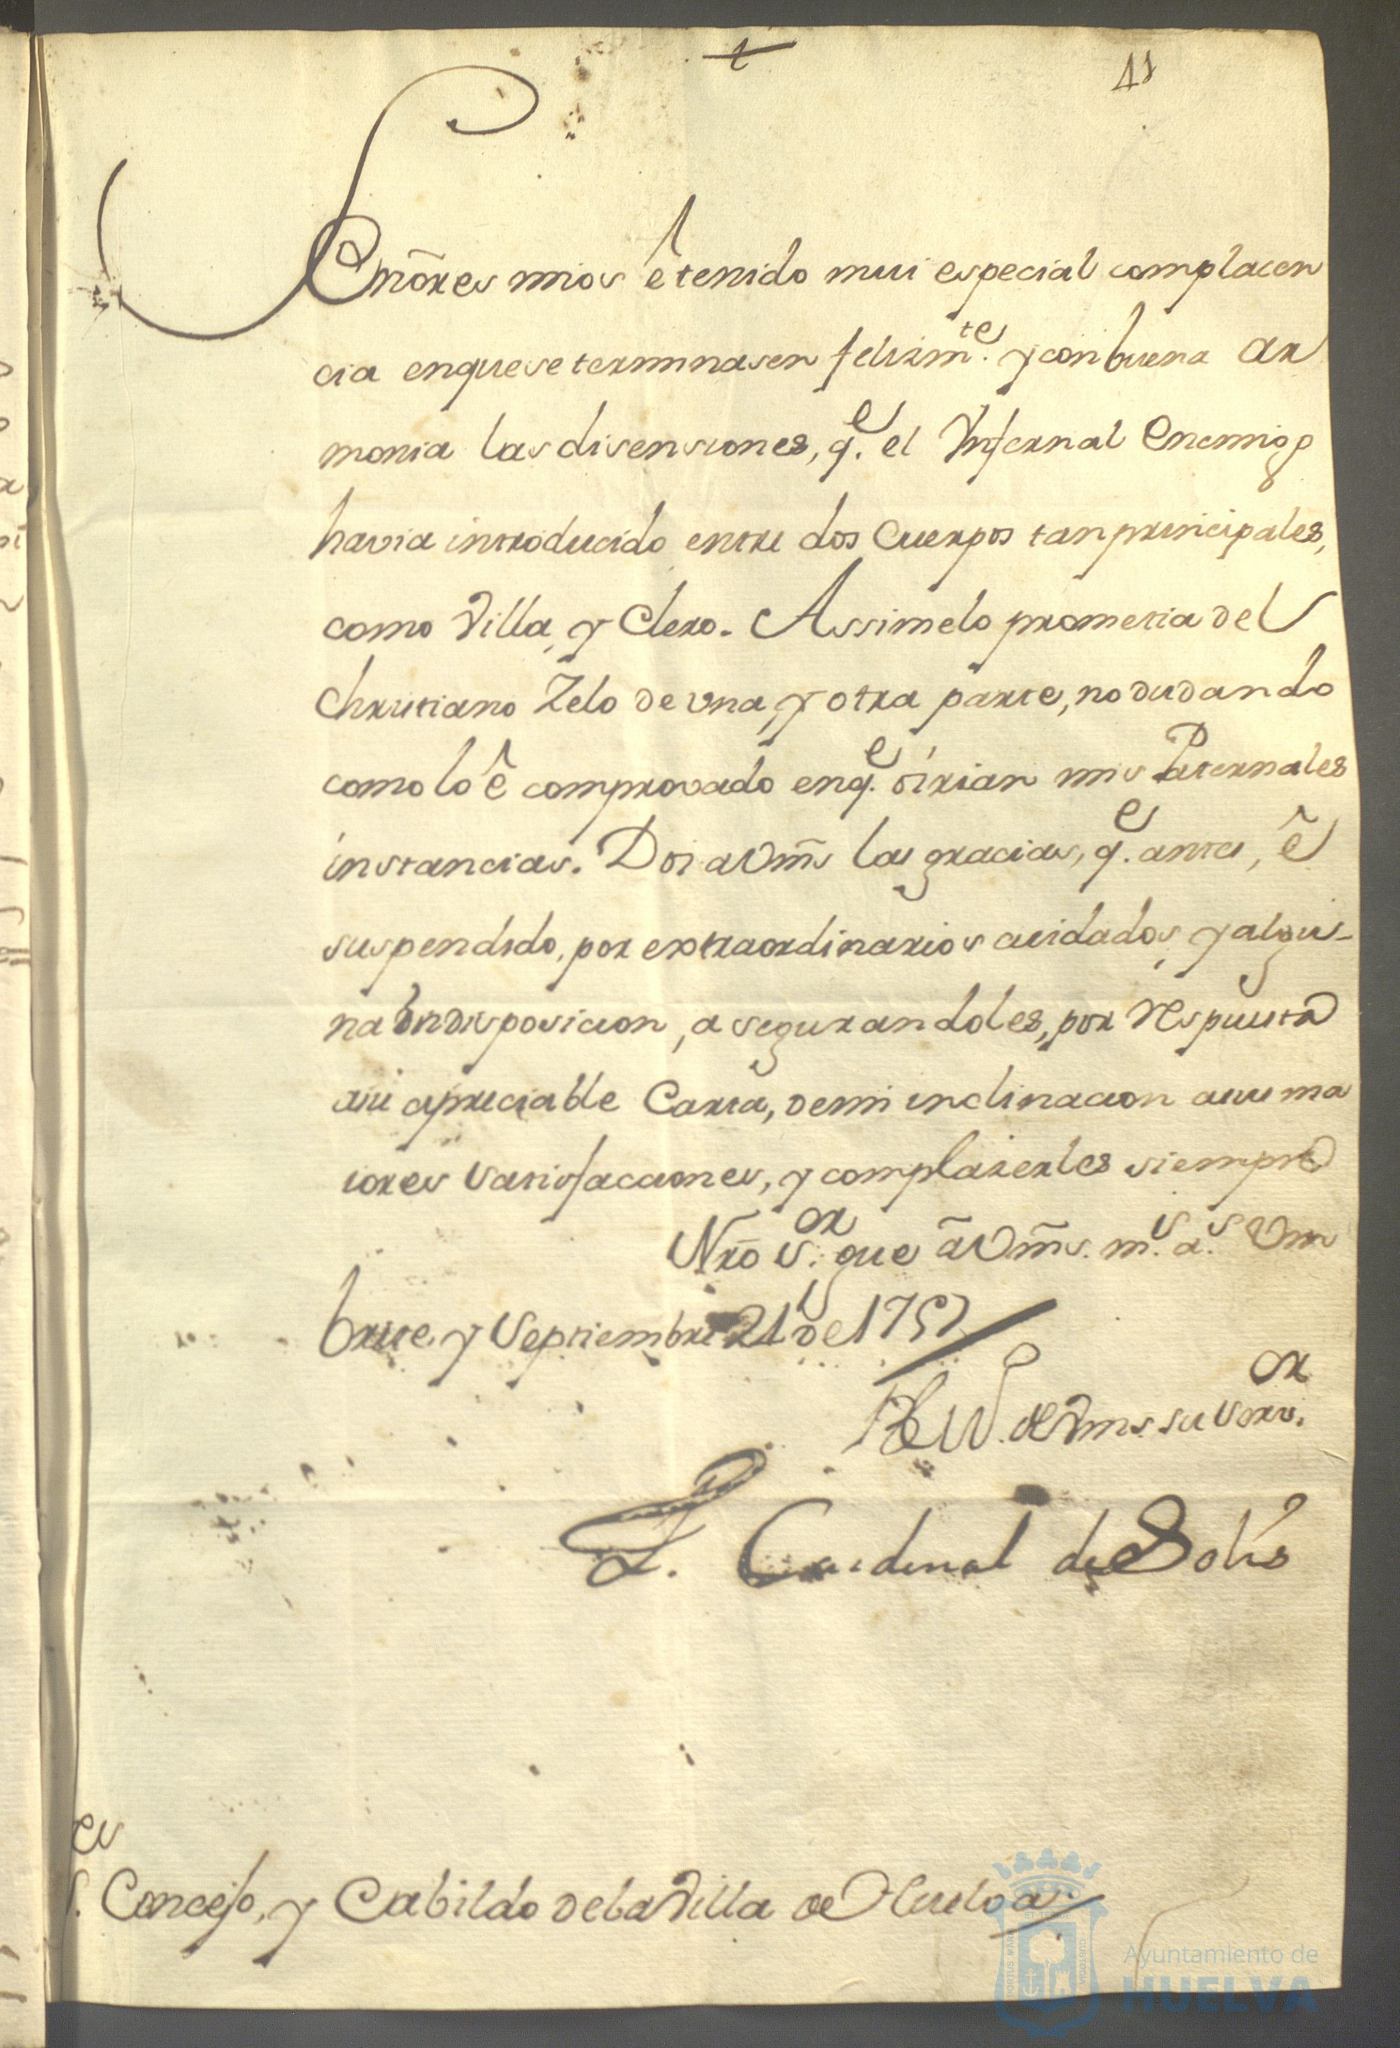 41
Señores mios é tenido mui especial complacen
cia en que se terminasen felizmte. y con buena ar
monia las disensiones, qe. el Ynfernal Enemigo
havia introducido entre dos Cuerpos tan principales,
como Villa, y Clero. Assi me lo prometia del
Christiano Zelo de vna, y otra parte, no dudando
como lo ê comprovado en qe. oírian mis Paternales
instancias. Doi a Vms̃ las gracias, qe. antes, ê
suspendido, por extraordinarios cuidados, y algu-
na Yndisposicion, asegurandoles, por respuesta
a su apreciable Carta, de mi inclinacion a sus ma
iores satisfacciones, y complazerles siempre
Nrõ Sor. gue ã Vms̃. ms. as. Vm
brete, y Septiembre 21 de 1757
de Vms su Seror.
F. Cardenal de Solís
Ses. Concejo, y Cabildo de la Villa de Huelva.
Ayuntamiento de
HUELVA